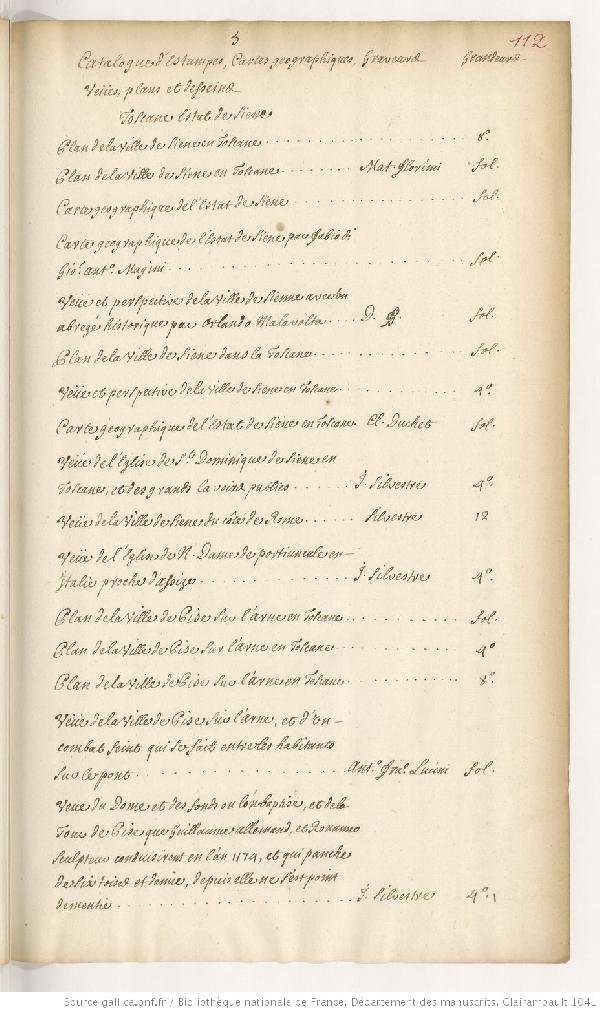 3 112
Catalogue d'Estampes, Cartes geographiques, Graveurs Grandeurs
Veües, plans et desseins
Toscane Estat de Siene
Plan de la Ville de Siene en Toscane 8°.
Plan de la Ville de Siene en Toscane Mat. Florimi fol.
Carte geographique de l'Estat de Siene fol.
Carte geographique de l'Estat de Siene par fabio di
Gio. ant°. Magini fol.
Veüe et perspective de la Ville de Sienne avec un
abregé historique par Orlando Malavolta D. fol.
Plan de la Ville de Siene dans la Toscane fol.
Veüe et perspective de la Ville de Siene en Toscane 4°.
Carte geographique de l'Estat de Siene en Toscane Cl. Duchet fol.
Veüe de l'Eglise de St. Dominique de Siene en
Toscane, et des grands lavoirs publics I. Silvestre 4°.
Veüe de la Ville de Siene du côté de Rome Silvestre 12
Veüe de l'Eglise de N. Dame de portiuncule en
Italie proche d'assize I. Silvestre 4°.
Plan de la Ville de Pise sur l'arne en Toscane fol.
Plan de la Ville de Pise sur l'arne en Toscane 4°
Plan de la Ville de Pise sur l'arne en Toscane 8°.
Veüe de la Ville de Pise sur l'arne, et d'un
combat feint qui se fait entre les habitants
sur le pont Ant°. fra. Lucini fol.
Veüe du Dome et des fonds ou l'on baptise, et de la
Tour de Pise que Guillaume allemand, et Bonanno
sculpteur conduisirent en l'an 1174, et qui panche
de six toises et demie, depuis elle ne s'est point
dementie I. Silvestre 4°.
Source gallica.bnf.fr / Bibliothèque nationale de France. Département des manuscrits. Clairambault 1041